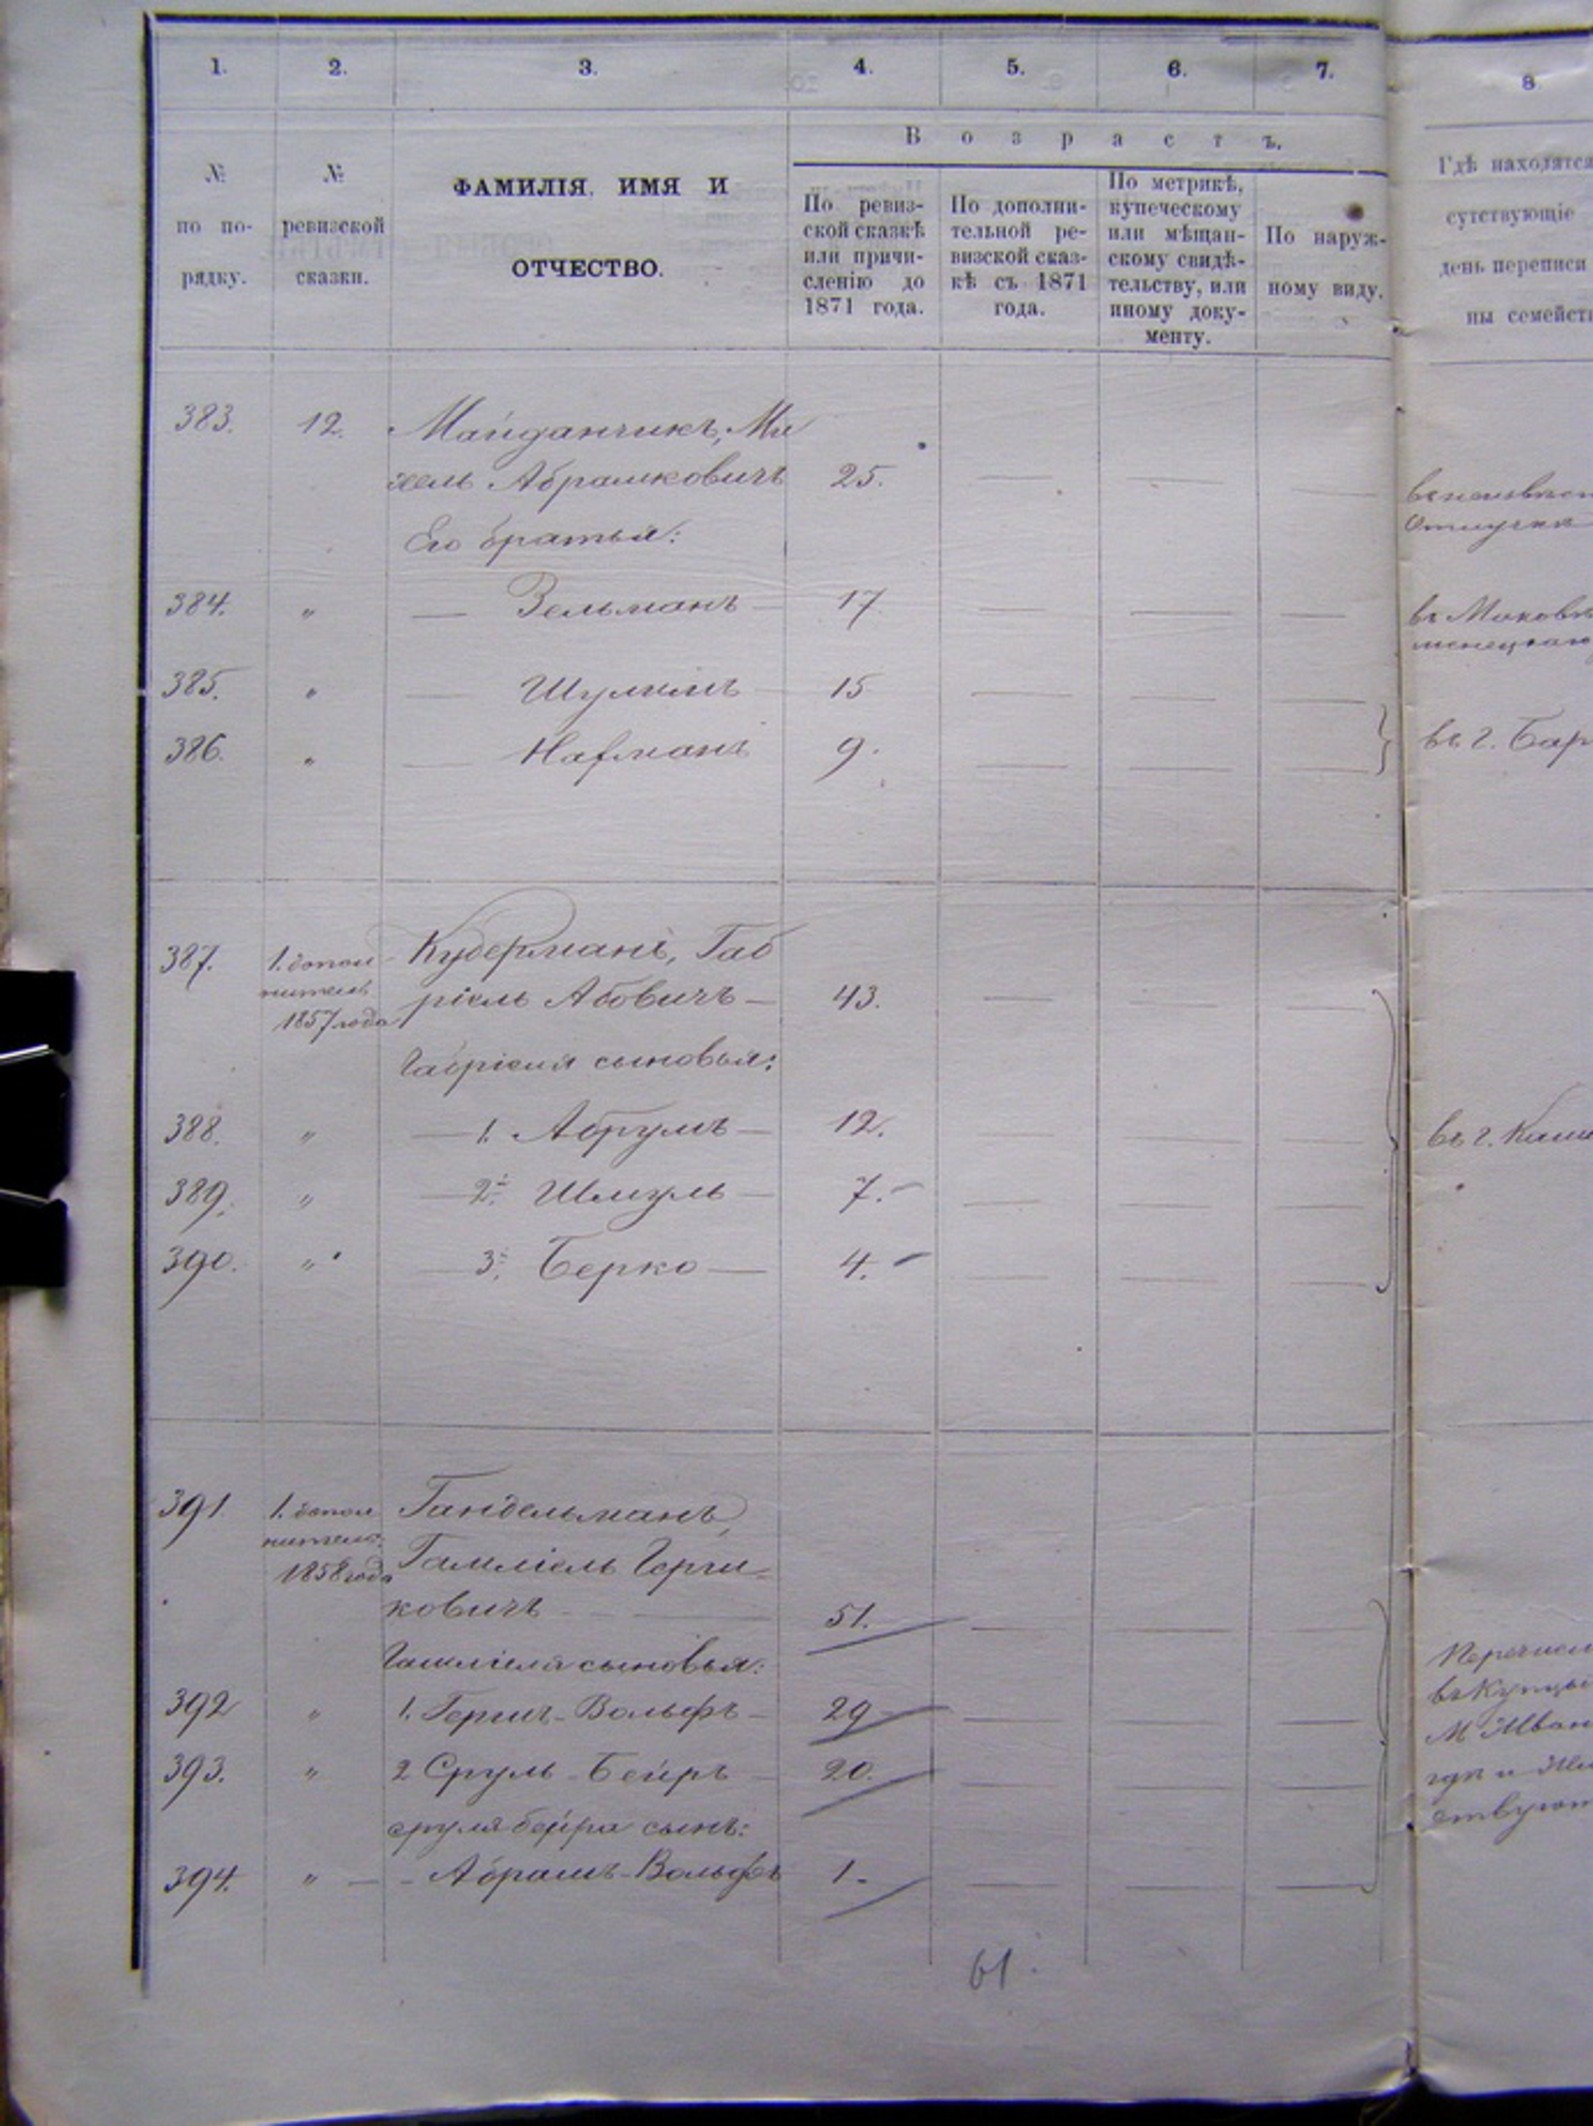 1. 2. 3. 4. 5. 6. 7. 8
Возрастъ.
№ по порядку.
№ ревизской сказки.
ФАМИЛІЯ, ИМЯ И
ОТЧЕСТВО.
По ревиз-
ской сказкѣ
или причи-
сленію до
1871 года.
По дополни-
тельной ре-
визской сказ-
кѣ съ 1871
года.
По метрикѣ,
купеческому
или мѣщан-
скому свидѣ-
тельству, или
иному доку-
менту.
По наруж-
ному виду.
Гдѣ находятся
сутствующіе
день переписи
ны семейст
383. 12. Майданчикъ, Ми
хель Абрамковичъ 25.
Его братья:
Отлучкѣ
384. " — Зельманъ — 17
385. " — Шулимъ — 15
386. " — Нафманъ 9.
въ г. Бар
387. 1. допол Кудерманъ, Габ
нитель ріель Абовичъ — 43.
1857 года
Габріеля сыновья:
388. " — 1. Абрумъ — 12.
въ г. Каме
389. " — 2. Шмуль — 7.
390. " — 3. Берко — 4.
391. 1. допол Гандельманъ,
нитель. Гамліель Герш-
1858 года ковичъ 51.
Гамліеля сыновья:
Перечисл
392 " 1. Гершъ-Вольфъ — 29
въ Купцы
393. " 2 Сруль-Бейръ — 20.
сруля-бейра сынъ:
394. " — Абрамъ-Вольфъ 1.
61.